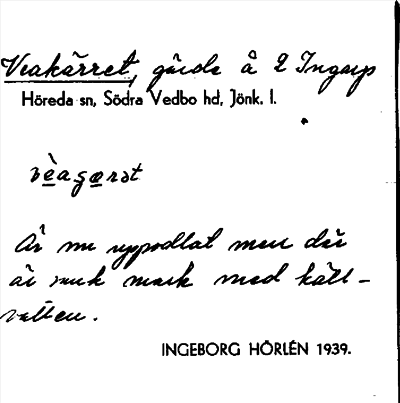 Veakärret, gärde å 2 Ingarp
Höreda sn, Södra Vedbo hd, Jönk. l.
vèaɕærət
Är nu uppodlat men där
är sank mark med käll-
vatten.
INGEBORG HÖRLÉN 1939.